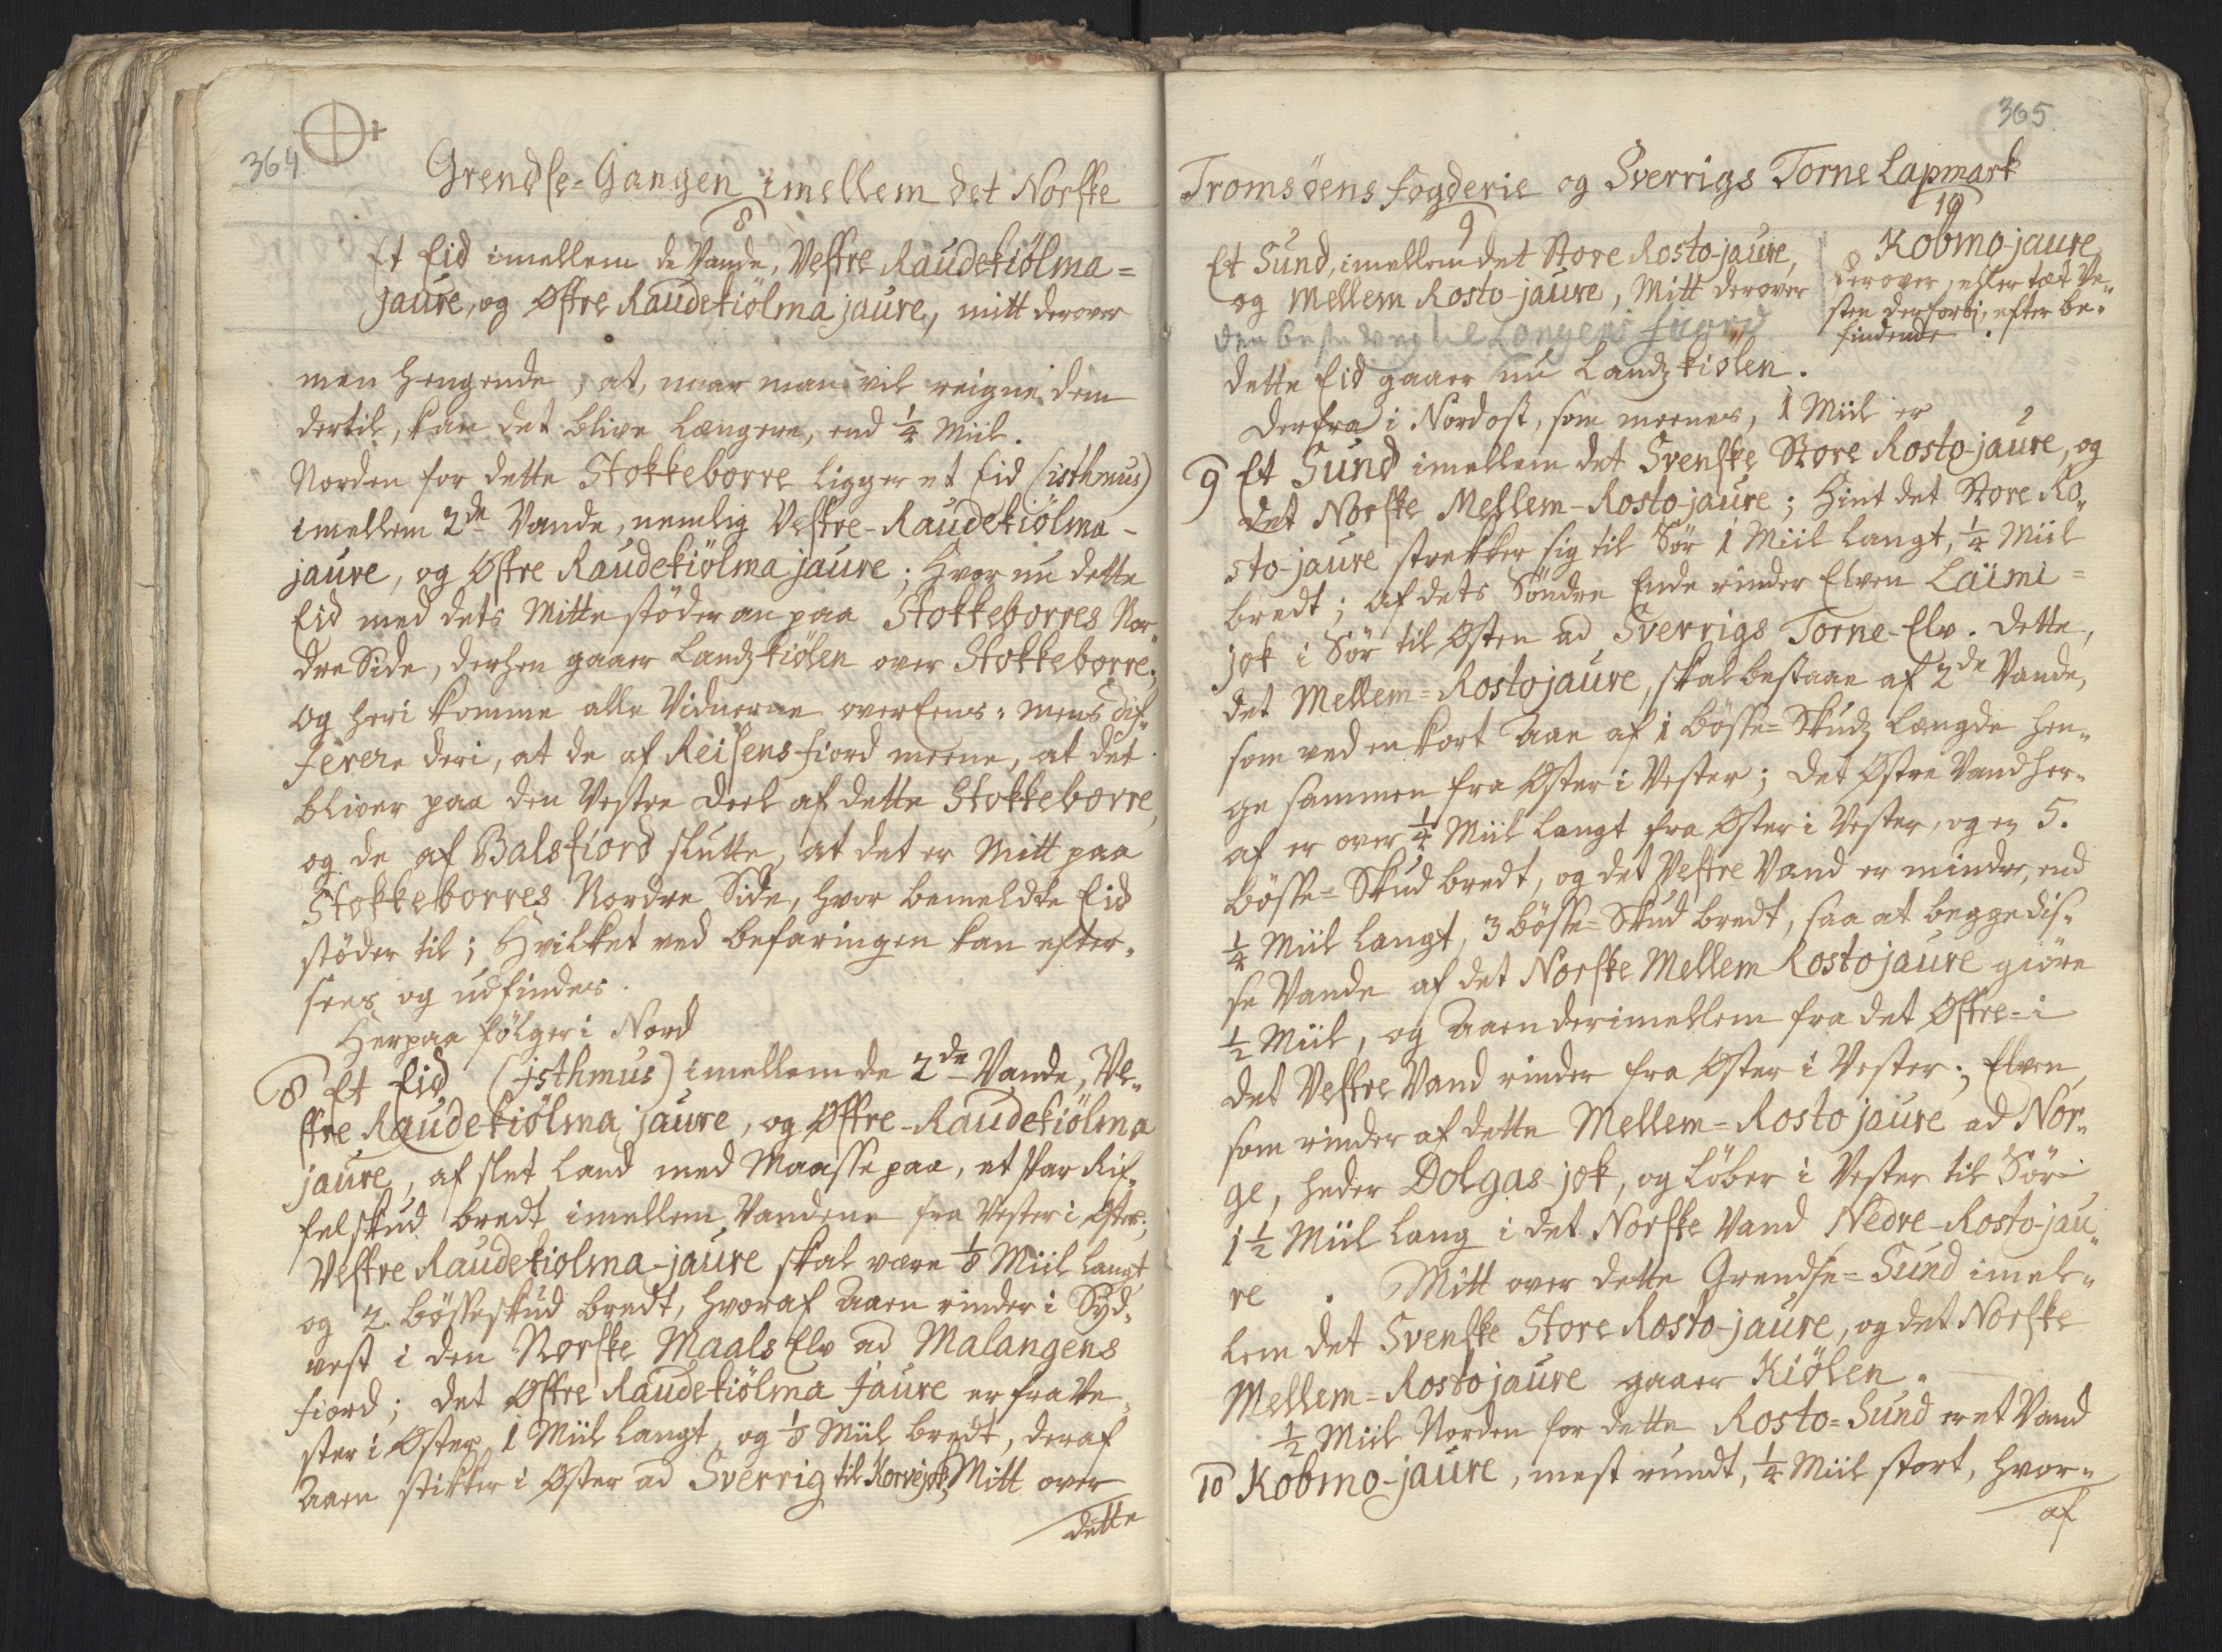 364
Grendse-Gangen imellem det Norske
8
Et Eid imellem de Vande, Vestre Raudekiölma=
jaure, og Østre Raudekiölma jaure, mitt derover
men hengende, at, naar man vil reigne dem
dertil, kan det blive længere, end 1/4 Miil.
Norden for dette Stokkeborre ligger et Eid (isthmus)
imellem 2de Vande, nemlig Vestre-Raudekiölma-
jaure, og Østre Raudekiölma jaure; Hvor nu dette
Eid med dets Mitte støder an paa Stokkeborres Nor-
dre Side, derhen gaaer Landz kiölen over Stokkeborre;
og heri komme alle Vidnerne overeens: mens dif-
ferere deri, at de af Reisens-fiord meene, at det
bliver paa den Vestre Deel af dette Stokkeborre,
og de af Balsfiord slutte, at det er Mitt paa
Stokkeborres Nordre Side, hvor bemeldte Eid
støder til; Hvilket ved befaringen kan efter-
sees og udfindes.
Herpaa fölger i Nord
8 Et Eid (isthmus) imellem de 2de Vande, Ve-
stre Raudekiölma jaure, og Østre-Raudekiölma
jaure, af slet Land med Maasse paa, et par Rif-
felskud bredt imellem Vandene fra Vester i Øster;
Vestre Raudekiolma-jaure skal være 1/8 Miil langt
og 2. bösseskud bredt, hvoraf Aaen rinder i Syd-
vest i den Norske Maals Elv ad Malangens
fiord; det Østre Raudekiölma Jaure er fra Ve-
ster i Øster 1 Miil langt, og 1/8 Miil bredt, deraf
Aaen stikker i Øster ad Sverrig til Korvejok; Mitt over
dette
365
Tromsöens fogderie og Sverrigs Torne Lapmark
9
Et Sund, imellem det Store Rosto-jaure,
og Mellem Rosto-jaure, Mitt derover
den beste vej til Lyngens fiord
10
Kobmo-jaure
derover, eller tæt Ve-
sten derforbi, efter be-
findende.
dette Eid gaaer nu Landz kiölen.
Derfra i Nordost, som meenes, 1 Miil er
9 Et Sund imellem det Svenske Store Rosto-jaure, og
det Norske Mellem-Rosto-jaure; Hint det Store Ro-
sto-jaure strekker sig til Sör 1 Miil langt, 1/4 Miil
bredt; af dets Söndre Ende rinder Elven Laimi=
jok i Sör til Østen ad Sverrigs Torne-Elv. Dette,
det Mellem=Rostojaure, skal bestaae af 2de Vande,
som ved en kort Aae af 1 bösse=Skudz Længde hen-
ge sammen fra Øster i Vester; det Østre Vand her-
af er over 1/4 Miil langt fra Øster i Vester, og en 5.
bösse=Skud bredt, og det Vestre Vand er mindre, end
1/4 Miil langt, 3 bösse=Skud bredt, saa at begge dis-
se Vande af det Norske Mellem Rostojaure giöre
1/2 Miil, og Aaen derimellem fra det Østre- i
det Vestre Vand rinder fra Øster i Vester; Elven,
som rinder af dette Mellem=Rosto jaure ad Nor-
ge, heder Dolgas jok, og Löber i Vester til Sör
1 1/2 Miil lang i det Norske Vand Nedre-Rosto-jau-
re. Mitt over dette Grendse=Sund imel-
lem det Svenske Store Rosto-jaure, og det Norske
Mellem=Rosto jaure gaaer Kiölen.
1/2 Miil Norden for dette Rosto=Sund er et Vand
10 Kobmo-jaure, mest rundt, 1/4 Miil stort, hvor-
af